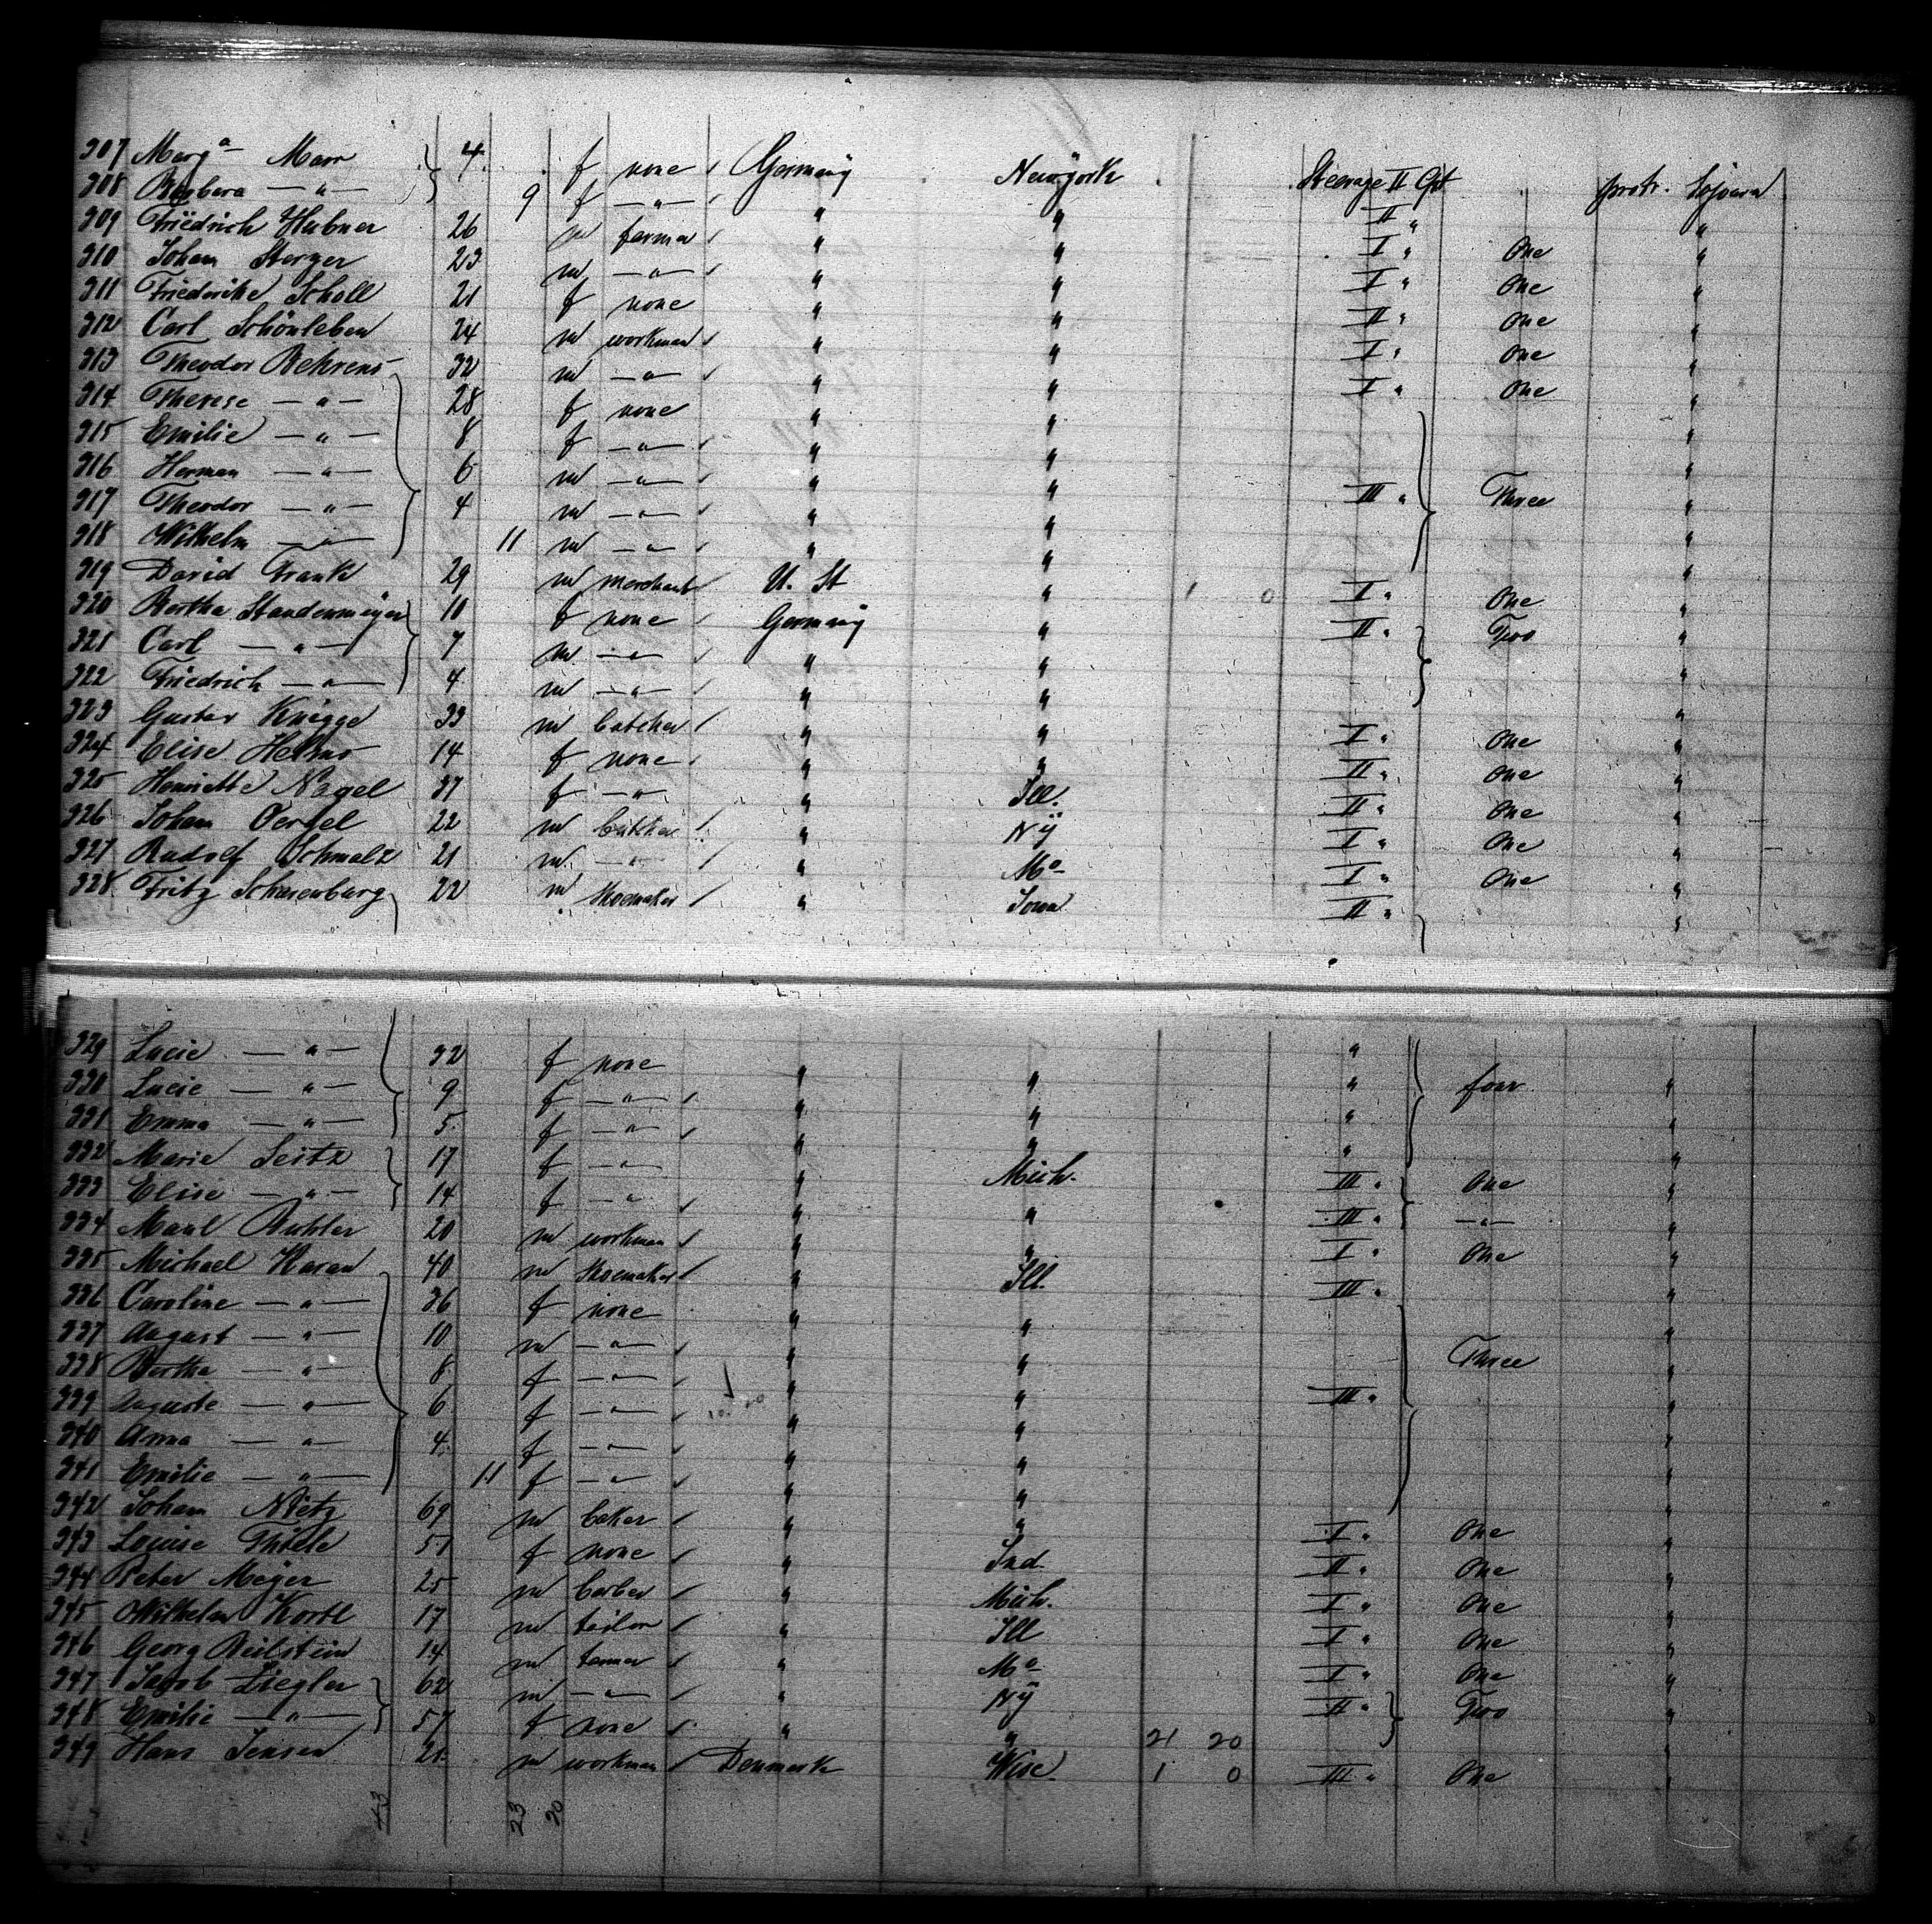 307 Marg a Marr 4 f none Germany Newÿork Steerage II Cpt protr. Sojourn
308 Barbara — " — 9 f — " — " " II " "
309 Friedrich Hubner 26 m farmer " " I " One "
310 Johann Sterzer 23 m — " — " " I " One "
311 Friederike Scholl 21 f none " " II " One "
312 Carl Schönleben 24 m workman " " I " One "
313 Theodor Behrens 32 m — " — " " I " One "
314 Therese — " — 28 f none " " "
315 Emilie — " — 8 f — " — " " "
316 Herman — " — 6 m — " — " " III " Three "
317 Theodor — " — 4 m — " — " " "
318 Wilhelm — " — 11 m — " — " " "
319 David Frank 29 m merchant U. St " 1 0 I " One "
320 Bertha Standenmeÿer 10 f none Germanÿ " II " Two "
321 Carl — " — 7 m — " — " " "
322 Friedrich — " — 4 m — " — " " "
323 Gustav Knigge 33 m butcher " " I " One "
324 Elise Helms 14 f none " " II " One "
325 Henriette Nagel 37 f — " — " Ill. II " One "
326 Johann Oertel 22 m butcher " Nÿ I " One "
327 Rudolf Schmelz 21 m — " — " Mo I " One "
328 Fritz Scharenberg 22 m shoemaker " Iowa II " "
329 Lucie — " — 32 f none " " "
330 Lucie — " — 9 f — " — " " " four "
331 Emma — " — 5 f — " — " " " "
332 Marie Seitz 17 f — " — " Mich. III " One "
333 Elise — " — 14 f — " — " " III " — " — "
334 Buhler 20 m workman " " I " One "
335 Michael 40 m shoemaker " Ill. III " "
336 Caroline — " — 36 f none " " "
337 August — " — 10 m — " — " " Three "
338 Bertha — " — 8 f — " — " " "
339 Auguste — " — 6 f — " — " " III " "
340 Anna — " — 4 f — " — " " "
341 Emilie — " — 11 f — " — " " "
342 Johann Nietz 69 m baker " " I " One "
343 Louise Thiele 51 f none " Ind II " One "
344 Peter Meÿer 25 m barber " Mich. I " One "
345 Wilhelm 17 m tailor " Ill I " One "
346 Georg Beilstein 14 m tanner " Mo I " One "
347 Jacob Ziegler 62 m — " — " Nÿ II " Two "
348 Emilie — " — 57 f none " " 21 20 "
349 Hans Jensen 21 m workman Denmark Wisc. 1 0 III " One "
43 23 20